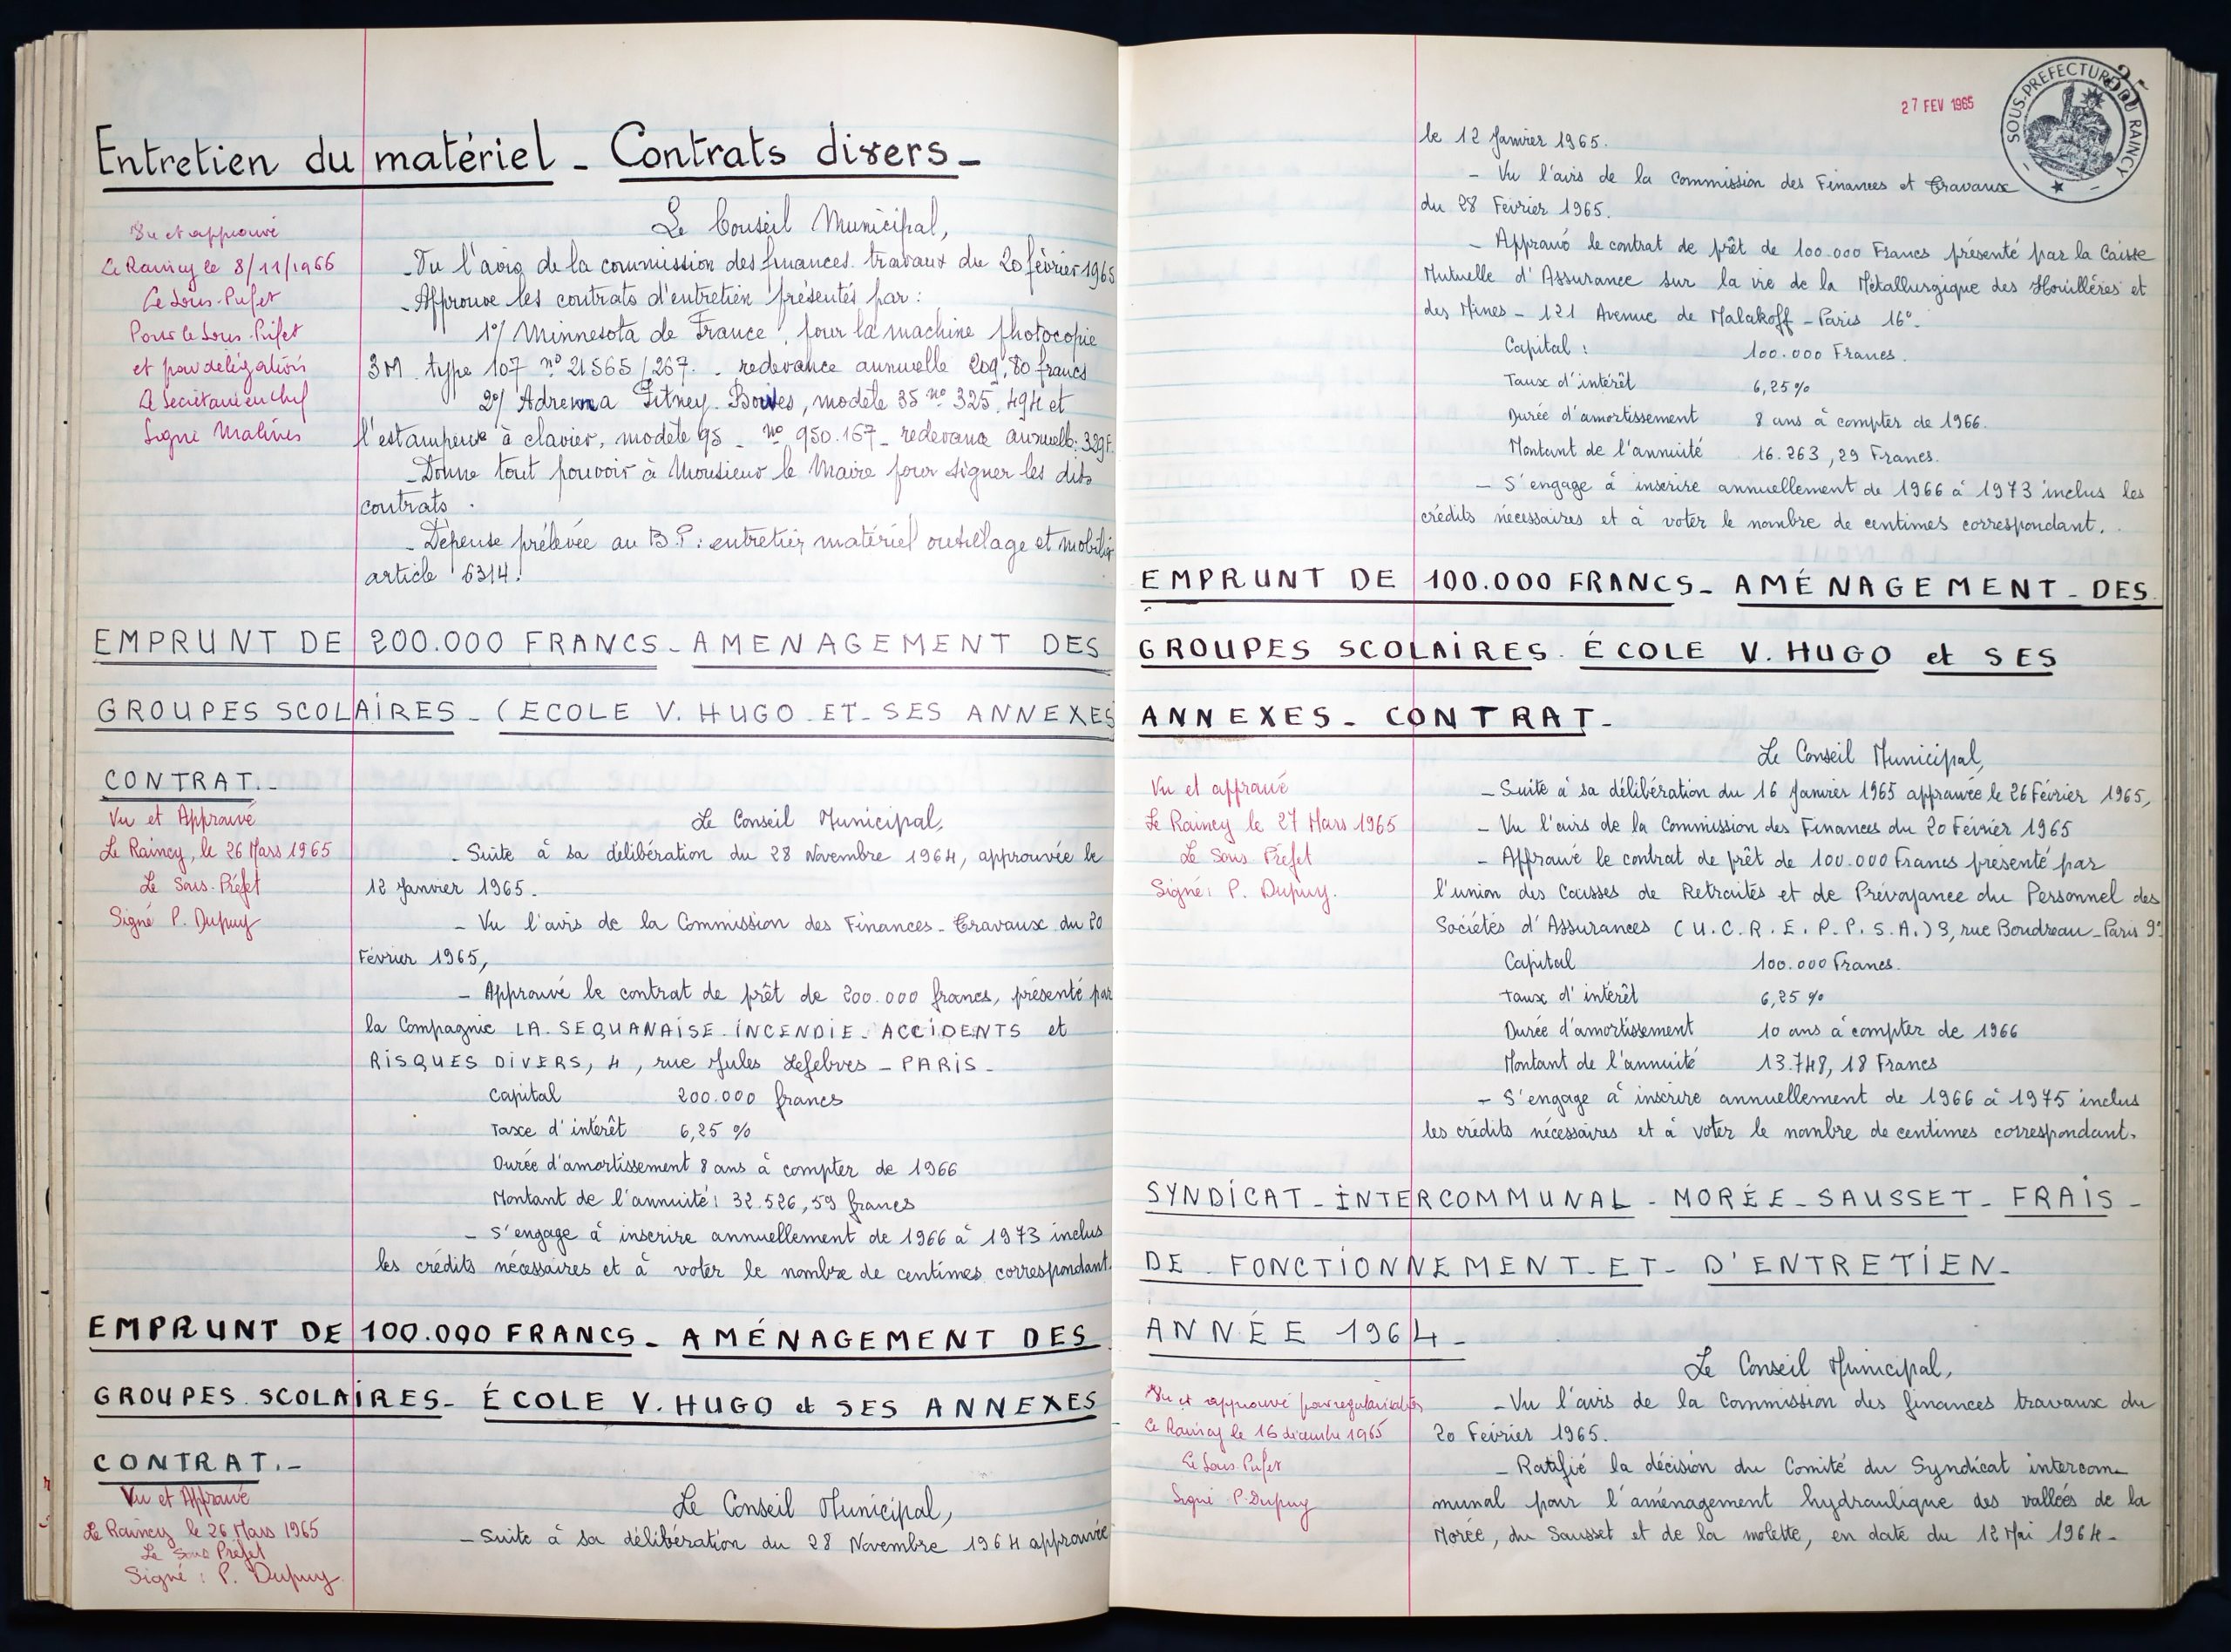 Entretien du matériel - Contrats divers -
Vu et approuvé
Le Raincy le 8/11/1966
Le Sous-Préfet
Pour le Sous-Préfet
et par délégation
Le Secrétaire en chef
Signé Malines
Le Conseil Municipal,
- Vu l'avis de la commission des finances travaux du 20 février 1965
- Approuve les contrats d'entretien présentés par :
1°/ Minnesota de France, pour la machine photocopie
3M type 107 n° 21565/267 - redevance annuelle 209,80 francs
2°/ Adrema Pitney-Bowes, modèle 35 n° 325.494 et
l'estampeuse à clavier, modèle 95 - n° 950.167 - redevance annuelle: 329F.
- Donne tout pouvoir à Monsieur le Maire pour signer les dits
contrats.
- Dépense prélevée au B.P: entretien matériel outillage et mobilier
article 6314.
EMPRUNT DE 200.000 FRANCS - AMENAGEMENT DES
GROUPES SCOLAIRES - (ECOLE V. HUGO ET SES ANNEXES
CONTRAT.-
Vu et Approuvé
Le Raincy, le 26 Mars 1965
Le Sous-Préfet
Signé P. Dupuy
Le Conseil Municipal,
- Suite à sa délibération du 28 Novembre 1964, approuvée le
12 Janvier 1965.
- Vu l'avis de la Commission des Finances - Travaux du 20
Février 1965,
- Approuvé le contrat de prêt de 200.000 francs, présenté par
la Compagnie LA SEQUANAISE INCENDIE - ACCIDENTS et
RISQUES DIVERS, 4, rue Jules Lefebvre - PARIS -
Capital 200.000 francs
Taxe d'intérêt 6,25 %
Durée d'amortissement 8 ans à compter de 1966
Montant de l'annuité: 32.526,59 francs
- S'engage à inscrire annuellement de 1966 à 1973 inclus
les crédits nécessaires et à voter le nombre de centimes correspondant.
EMPRUNT DE 100.000 FRANCS - AMÉNAGEMENT DES
GROUPES SCOLAIRES - ÉCOLE V. HUGO et SES ANNEXES
CONTRAT.-
Vu et Approuvé
Le Raincy le 26 Mars 1965
Le Sous Préfet
Signé : P. Dupuy
Le Conseil Municipal,
- Suite à sa délibération du 28 Novembre 1964 approuvée
27 FEV 1965
SOUS-PREFECTURE DU RAINCY
le 12 Janvier 1965.
- Vu l'avis de la Commission des Finances et Travaux
du 28 Février 1965.
- Approuvé le contrat de prêt de 100.000 Francs présenté par la Caisse
Mutuelle d'Assurance sur la vie de la Métallurgique des Houillères et
des Mines - 121 Avenue de Malakoff - Paris 16e.
Capital : 100.000 Francs.
Taux d'intérêt 6,25%
Durée d'amortissement 8 ans à compter de 1966.
Montant de l'annuité 16.263,29 Francs.
- S'engage à inscrire annuellement de 1966 à 1973 inclus les
crédits nécessaires et à voter le nombre de centimes correspondant.
EMPRUNT DE 100.000 FRANCS - AMÉNAGEMENT - DES
GROUPES SCOLAIRES. ÉCOLE V. HUGO et SES
ANNEXES - CONTRAT -
Vu et approuvé
Le Raincy le 27 Mars 1965
Le Sous Préfet
Signé: P. Dupuy.
Le Conseil Municipal,
- Suite à sa délibération du 16 Janvier 1965 approuvée le 26 Février 1965,
- Vu l'avis de la Commission des Finances du 20 Février 1965
- Approuvé le contrat de prêt de 100.000 Francs présenté par
l'union des Caisses de Retraités et de Prévoyance du Personnel des
Sociétés d'Assurances (U.C.R.E.P.P.S.A.) 9, rue Boudreau - Paris 9e
Capital 100.000 Francs.
Taux d'intérêt 6,25 %
Durée d'amortissement 10 ans à compter de 1966
Montant de l'annuité 13.748,18 Francs
- S'engage à inscrire annuellement de 1966 à 1975 inclus
les crédits nécessaires et à voter le nombre de centimes correspondant.
SYNDICAT - INTERCOMMUNAL - MORÉE - SAUSSET - FRAIS -
DE FONCTIONNEMENT - ET - D'ENTRETIEN -
ANNÉE 1964 -
Vu et approuvé pour régularisation
Le Raincy le 16 décembre 1965
Le Sous-Préfet
Signé P. Dupuy
Le Conseil Municipal,
- Vu l'avis de la Commission des finances travaux du
20 Février 1965.
- Ratifié la décision du Comité du Syndicat intercom-
munal pour l'aménagement hydraulique des vallées de la
Morée, du Sausset et de la molette, en date du 12 Mai 1964 -